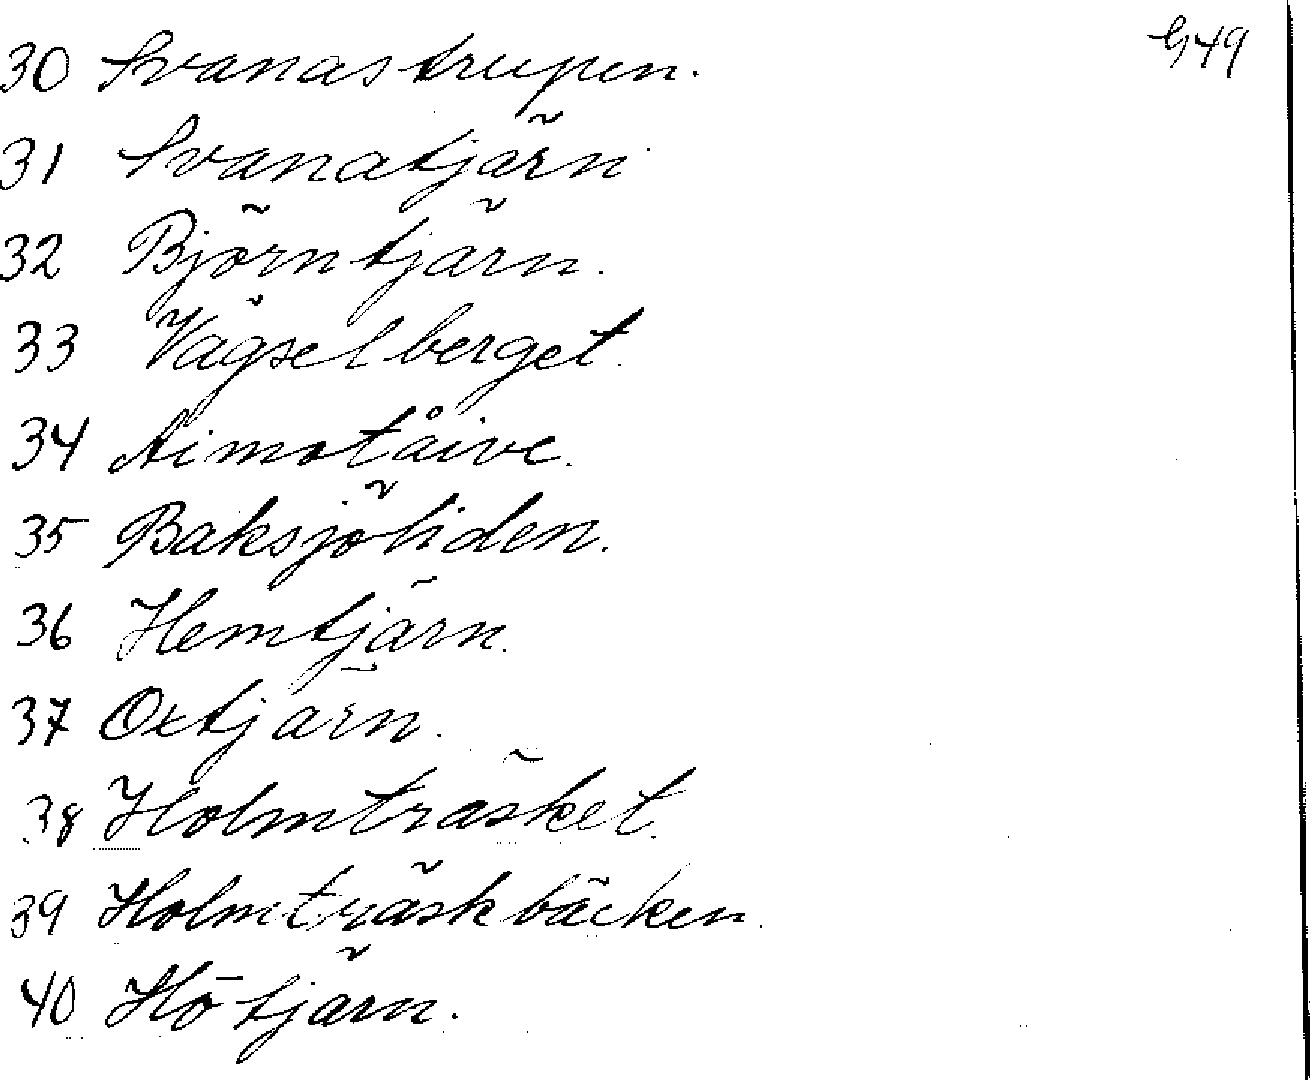 G49
30 Svanastrupen.
31 Svanatjärn
32 Björntjärn.
33 Vägselberget.
34 Aimotåive.
35 Baksjöliden.
36 Hemtjärn.
37 Oxtjärn.
38 Holmträsket.
39 Holmträskbäcken.
40 Hötjärn.